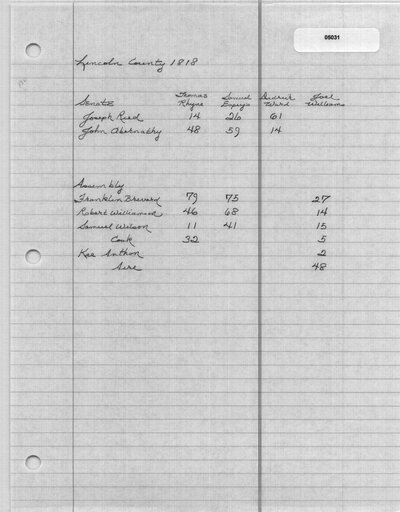 05031
Lincoln County 1818
Thomas Samuel Joel
Senate Rhyne Ward Williams
Joseph Reed 14 26 61
John Abernathy 48 59 14
Assembly
Franklin Brevard 79 75 27
Robert Williamson 46 68 14
Samuel Wilson 11 41 15
Cook 32 5
2
48